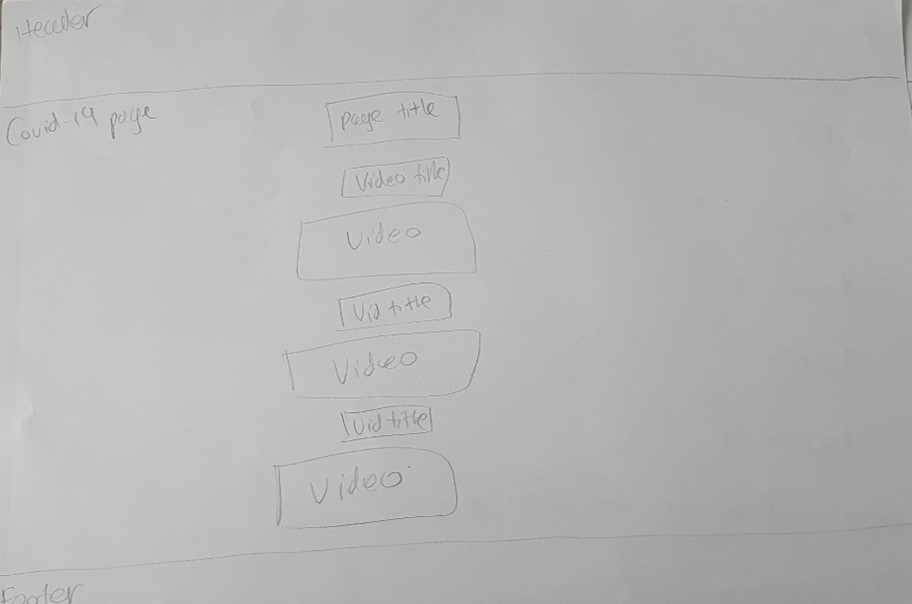 Header
Covid-19 page
page title
Video title
Video
Vid title
Video
Vid title
Video
Footer